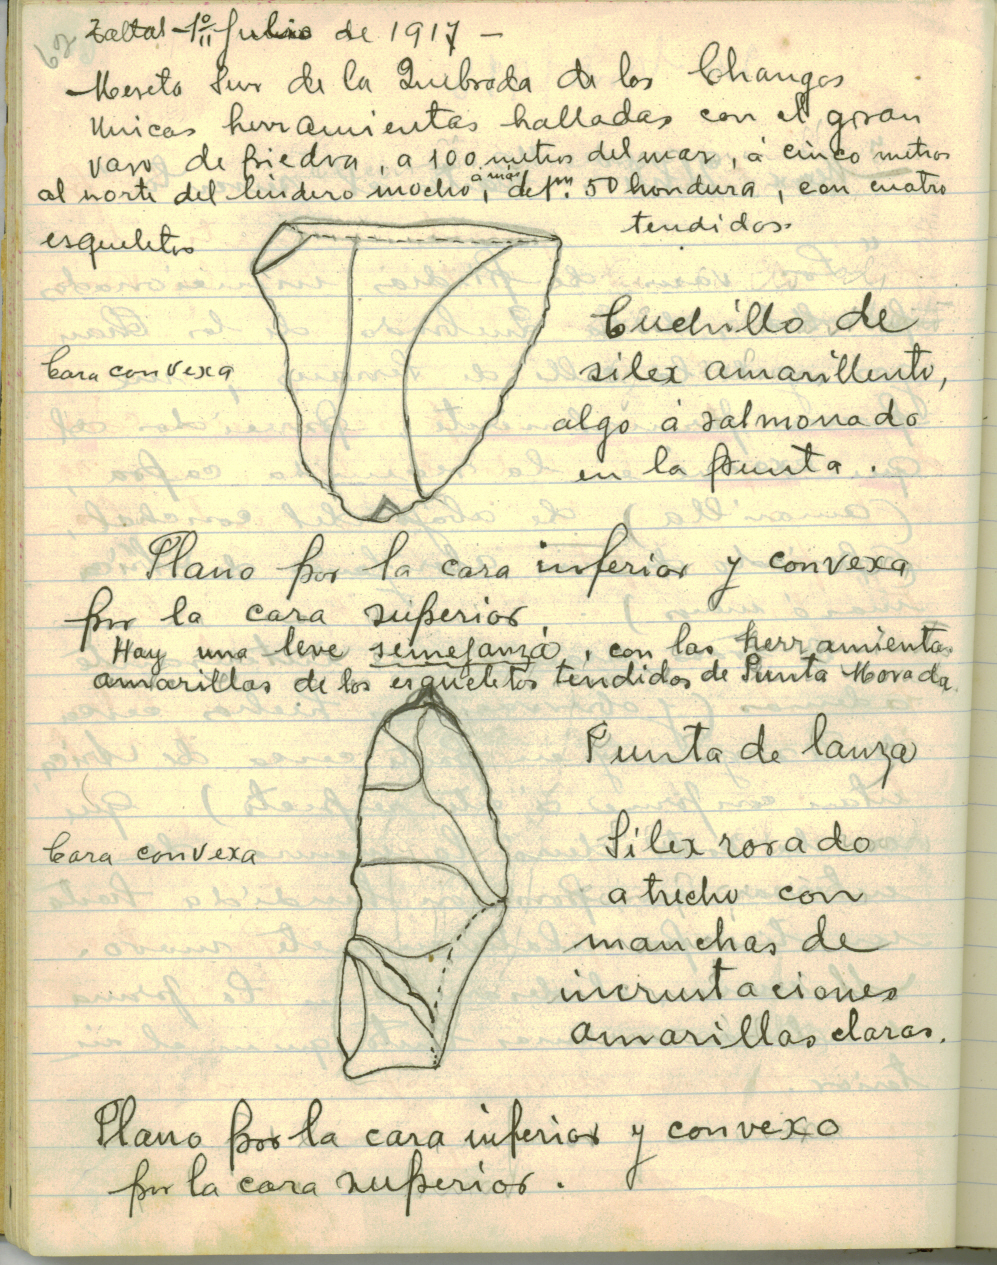 Taltal 1º Julio de 1917 –
Meseta Sur de la Quebrada de los Changos
Unicas herramientas halladas con el gran
vaso de piedra, a 100 metros del mar, á cinco metros
al norte del lindero mocho, á más de 1m. 50 hondura, con cuatro
esqueletos tendidos.
Cara convexa
Cuchillo de
silex amarillento,
algo á salmonado
en la punta.
Plano por la cara inferior y convexa
por la cara superior
Hay una leve semejanza, con las herramientas
amarillas de los esqueletos tendidos de Punta Morada.
Punta de lanza
Cara convexa
Silex rosado
a trecho con
manchas de
incrustaciones
amarillas claras.
Plano por la cara inferior y convexo
por la cara superior.